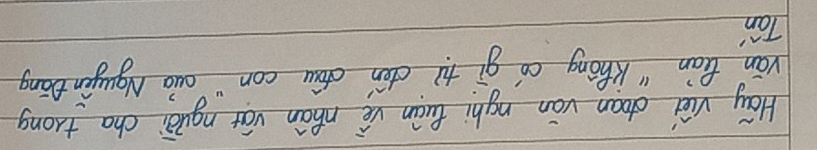 Hãy viết đoạn văn nghị luận về nhân vật người cha trong
văn bản "Không có gì tự đến đâu con" của Nguyễn Đăng
Tấn